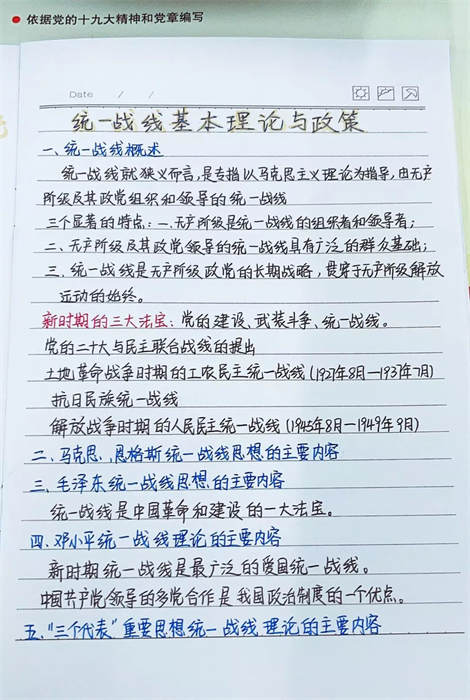 依据党的十九大精神和党章编写
Date / /
统一战线基本理论与政策
一、统一战线概述
统一战线就狭义而言,是专指以马克思主义理论为指导,由无产
阶级及其政党组织和领导的统一战线
三个显著的特点:一、无产阶级是统一战线的组织者和领导者;
二、无产阶级及其政党领导的统一战线具有广泛的群众基础;
三、统一战线是无产阶级政党的长期战略,贯穿于无产阶级解放
运动的始终。
新时期的三大法宝:党的建设、武装斗争、统一战线。
党的二十大与民主联合战线的提出
土地革命战争时期的工农民主统一战线(1927年8月—1937年7月)
抗日民族统一战线
解放战争时期的人民民主统一战线(1945年8月—1949年9月)
二、马克思、恩格斯统一战线思想的主要内容
三、毛泽东统一战线思想的主要内容
统一战线是中国革命和建设的一大法宝。
四、邓小平统一战线理论的主要内容
新时期统一战线是最广泛的爱国统一战线。
中国共产党领导的多党合作是我国政治制度的一个优点。
五、“三个代表”重要思想统一战线理论的主要内容